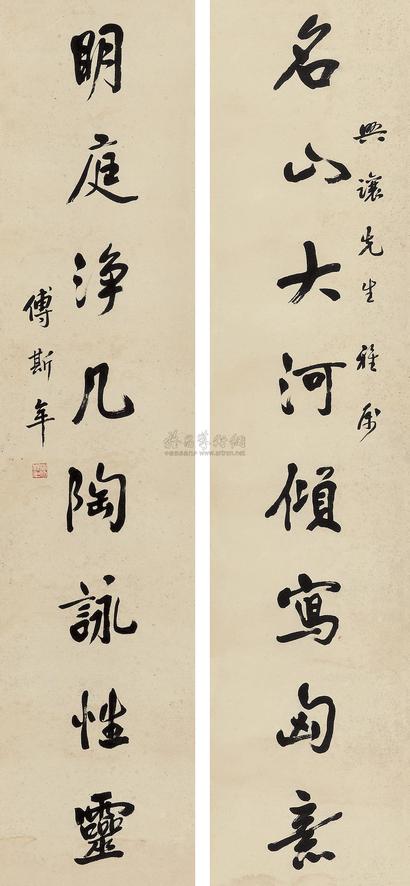 興讓先生 雅屬
名山大河傾寫匈意
明庭淨几陶詠性靈
傅斯年
雅昌藝術網
www.artron.net